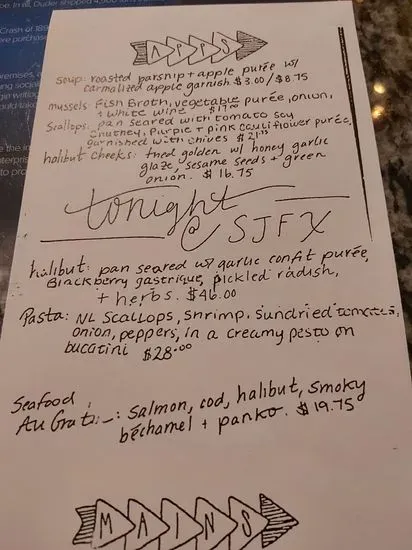 APPS
Soup: roasted parsnip + apple purée w/
carmalized apple garnish. $3.00/$8.75
mussels: Fish Broth, vegetable purée, onion,
+ white wine $17.00
Scallops: pan seared with tomato soy
chutney, purple + pink cauliflower purée,
garnished with chives $21.
halibut cheeks: fried golden w/ honey garlic
glaze, sesame seeds + green
onion. $16.75
tonight
@ SJFX
halibut: pan seared w/ garlic confit purée,
Blackberry gastrique, pickled radish,
+ herbs. $46.00
Pasta: NL Scallops, shrimp, sundried tomatoes,
onion, peppers, in a creamy pesto on
bucatini $28.00
Seafood
Au Gratin: salmon, cod, halibut, smoky
béchamel + panko. $19.75
MAINS